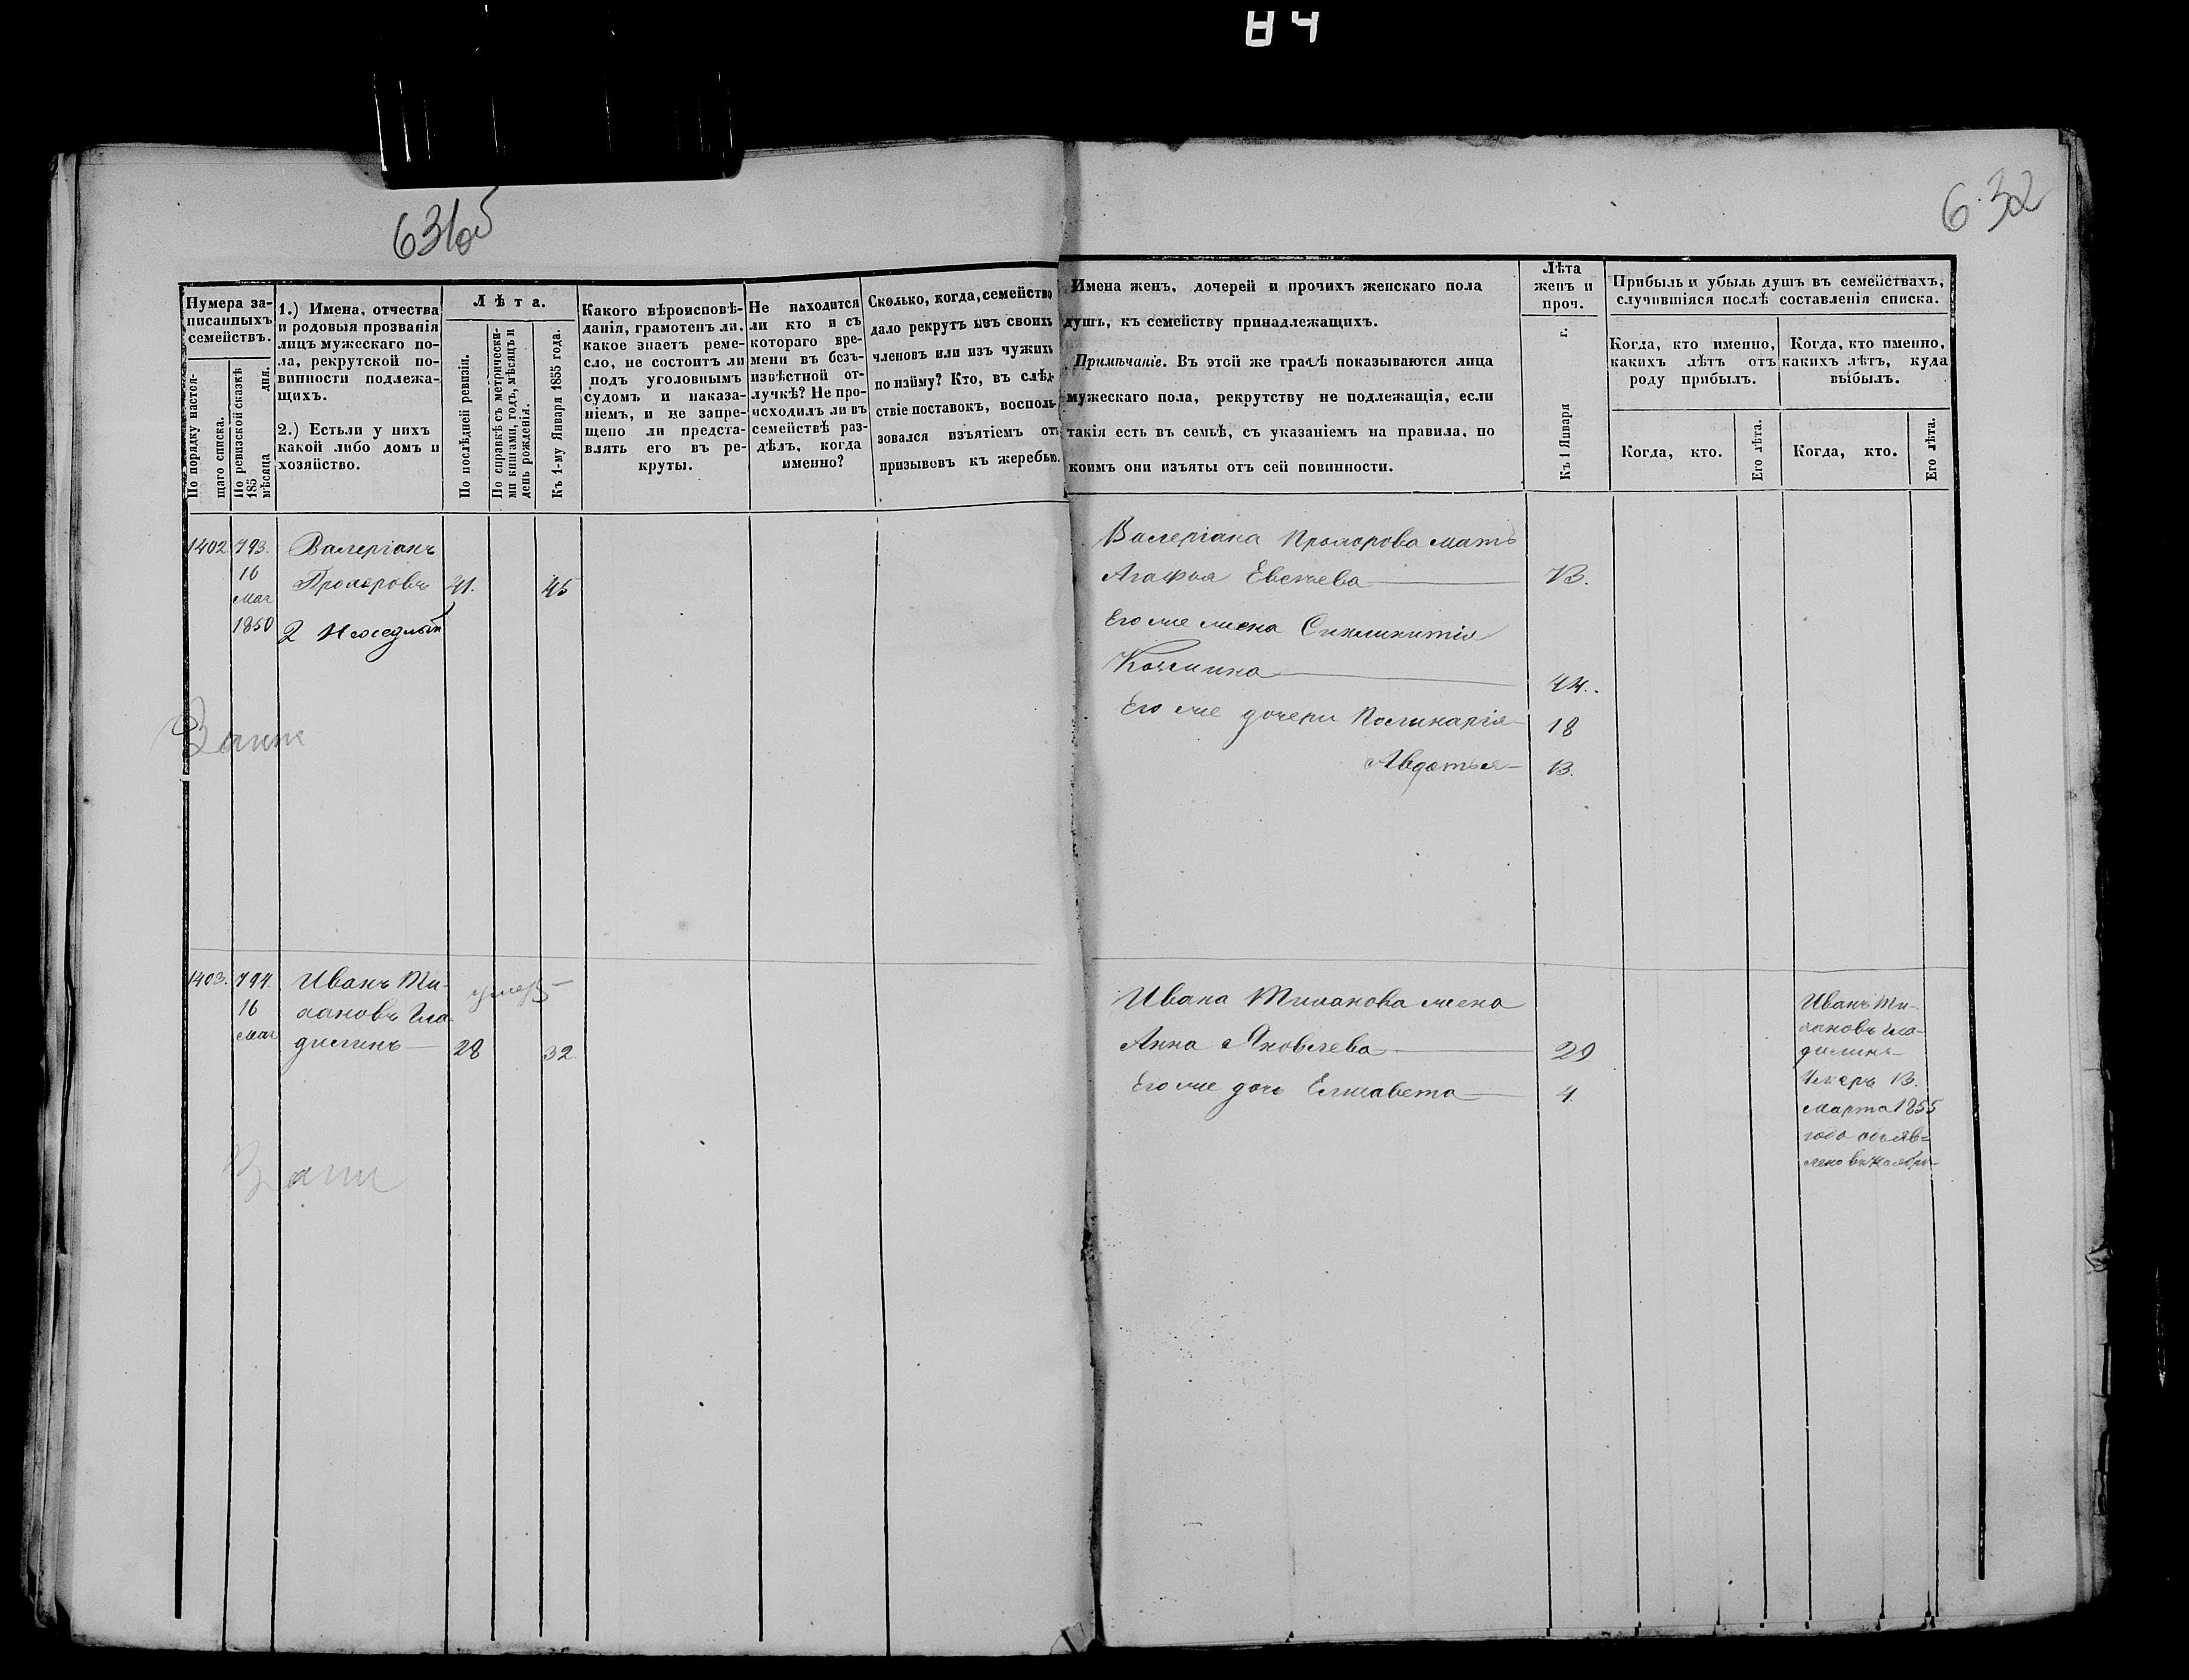 84
631об
632
Нумера за-
писанныхъ
семействъ.
По порядку настоя-
щаго списка.
По ревизской сказкѣ
185 дня.
мѣсяца
1.) Имена, отчества
и родовыя прозванія
лицъ мужескаго по-
ла, рекрутской по-
винности подлежа-
щихъ.
2.) Естьли у нихъ
какой либо домъ и
хозяйство.
Лѣта.
По послѣдней ревизіи.
По справкѣ съ метрически-
ми книгами, годъ, мѣсяцъ и
день рожденія.
Къ 1-му Января 1855 года.
Какого вѣроисповѣ-
данія, грамотенъ ли.
какое знаетъ реме-
сло, не состоитъ ли
подъ уголовнымъ
судомъ и наказа-
ніемъ, и не запре-
щено ли предста-
влять его въ ре-
круты.
Не находится
ли кто и съ
котораго вре-
мени въ безъ-
извѣстной от-
лучкѣ? Не про-
исходилъ ли въ
семействѣ раз-
дѣлъ, когда
именно?
Сколько, когда, семейство
дало рекрутъ изъ своихъ
членовъ или изъ чужихъ
по найму? Кто, въ слѣд-
ствіе поставокъ, восполь-
зовался изъятіемъ отъ
призывовъ къ жеребью.
Имена женъ, дочерей и прочихъ женскаго пола
душъ, къ семейству принадлежащихъ.
Примѣчаніе. Въ этой же графѣ показываются лица
мужескаго пола, рекрутству не подлежащія, если
такія есть въ семьѣ, съ указаніемъ на правила, по
коимъ они изъяты отъ сей повинности.
Лѣта
женъ и
проч.
Къ 1 Января г.
Прибыль и убыль душъ въ семействахъ,
случившіяся послѣ составленія списка.
Когда, кто именно,
какихъ лѣтъ отъ
роду прибылъ.
Когда, кто именно,
какихъ лѣтъ, куда
выбылъ.
Когда, кто.
Его лѣта.
Когда, кто.
Его лѣта.
1402 793. Валеріанъ
16 Прохоровъ 41. 45
мая
1850 2
Валеріана Прохорова мать
Агафья 73.
Его же жена Синклитикія
Козмина 44.
Его же дочери Полинарія 18
Авдотья 13.
1403. 794. Иванъ Ти- умеръ
16 хановъ Гла-
мая дилинъ 28 32
Ивана Тиханова жена
Анна Яковлева 29
Его же дочь Елисавета 4
Иванъ Ти-
хановъ Гла-
дилинъ
Умеръ 13.
Марта 1855
года объяв-
лено въ Ноябрѣ